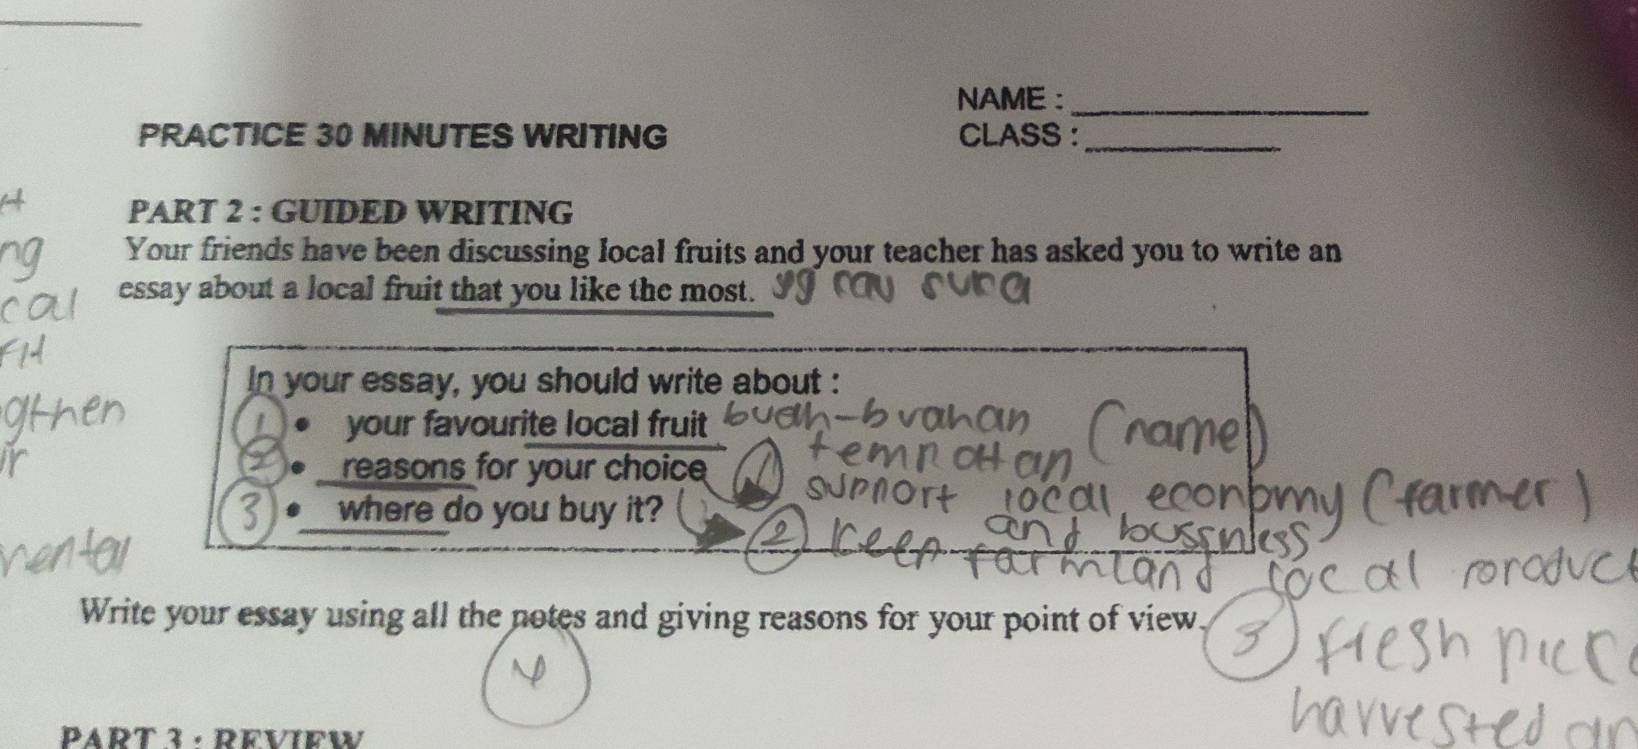 NAME :
PRACTICE 30 MINUTES WRITING
CLASS :
PART 2 : GUIDED WRITING
ng
Your friends have been discussing local fruits and your teacher has asked you to write an
cal
essay about a local fruit that you like the most. yg kau suka
FH
In your essay, you should write about :
gthen
1 • your favourite local fruit buah-buahan (name)
2 • reasons for your choice 1 tempatan
support local economy (farmer)
3 • where do you buy it? and bussnless
2 keep farmland local product
mental
Write your essay using all the notes and giving reasons for your point of view.
3 fresh pick
4
harvested an
PART 3 : REVIEW